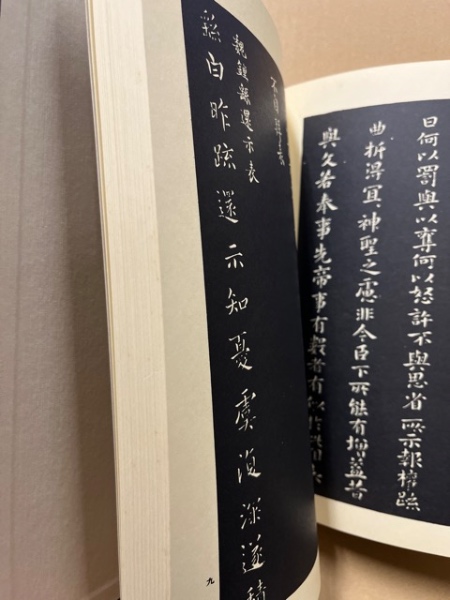 曰何以罰與以奪何以怒許不與思省所示報權疏
曲折得宜神聖之慮非今臣下所能有增益昔
與文若奉事先帝事有數者有似
魏鍾繇還示表
繇白昨疏還示知憂虞復深遂積
九